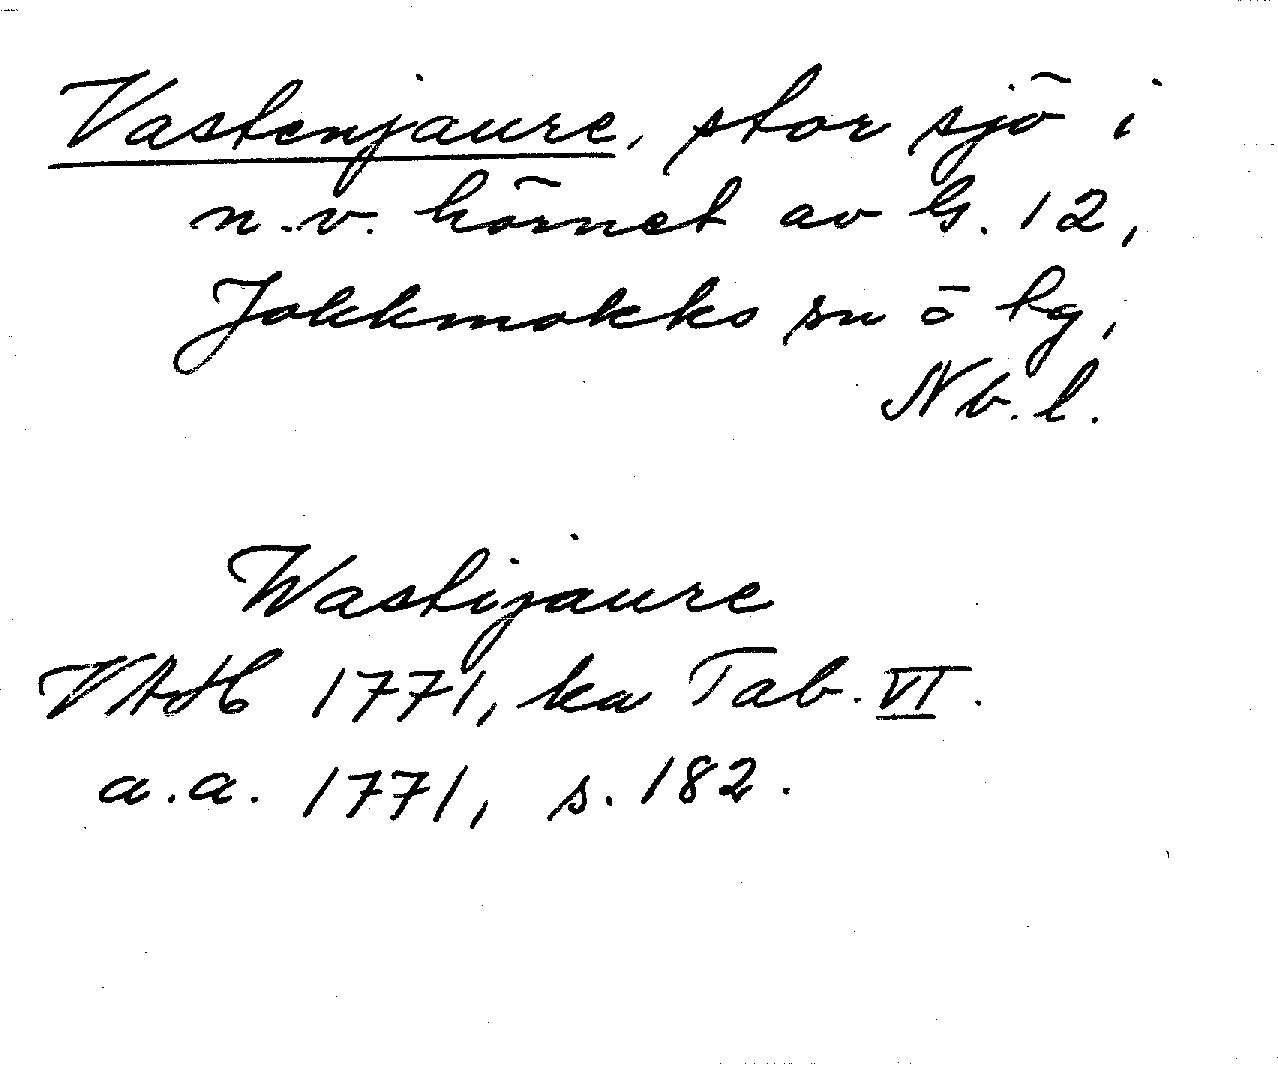 Vastenjaure, stor sjö i
n.v. hörnet av G. 12,
Jokkmokks sn o lg,
Nb. l.
Wastijaure
VAH 1771, ka Tab. VI.
a.a. 1771, s. 182.